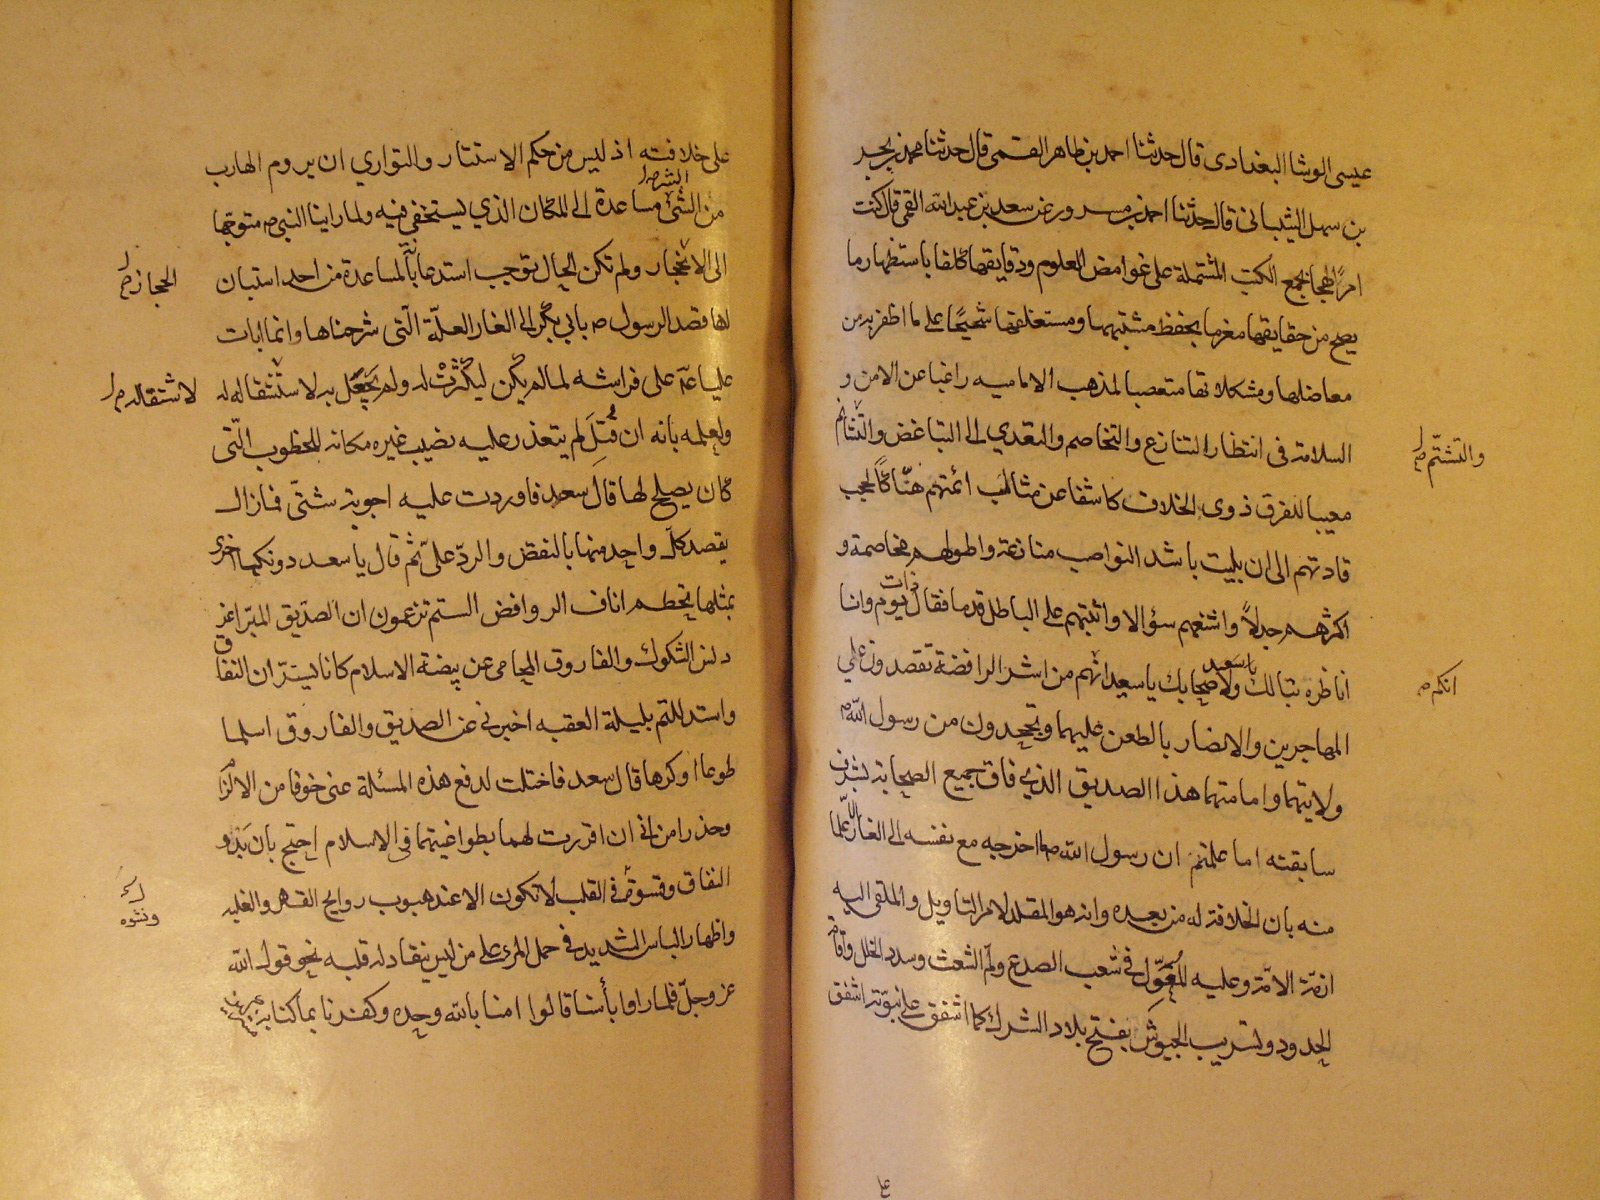 عيسى الوشا البغدادى قال حدثنا احمد بن طاهر القمى قال حدثنا محمد بن بحر
بن سهل الشيبانى قال حدثنا احمد بن مسرور عن سعد بن عبد الله القمى قال كنت
امرًا لهجا بجمع الكتب المشتملة على غوامض العلوم ودقايقها كلفا باستظهار ما
يصح من حقايقها مغرما بحفظ مشتبهها ومستغلقها شحيحًا على ما اظفر به من
معاضلها ومشكلاتها متعصبا لمذهب الاماميه راغبا عن الامن و
السلامة فى انتظار التنازع والتخاصم والتعدي الى التباغض والتشاتم
والتشتّم
معيبا للفرق ذوى الخلاف كاشفا عن مثالب ائمتهم هتّاكًا لحجب
قادتهم الى ان بليت باشد النواصب منازعة واطولهم مخاصمة و
اكثرهم جدلاً واشنعهم سؤالا واثبتهم على الباطل قدما فقال ذات يوم وانا
اناظره تبا لك ولاصحابك يا سعد انهم من اشر الرافضة تقصدون على
يا سعد
انكم
المهاجرين والانصار بالطعن عليهما وتجحدون من رسول الله ص
ولايتهما وامامتهما هذا الصديق الذي فاق جميع الصحابة بشرف
سابقته اما علمتم ان رسول الله ص ما اخرجه مع نفسه الى الغار الا علما
منه بان الخلافة له من بعده وانه هو المقلد لامر التاويل والملقى اليه
ازمّة الامّة وعليه المُعَوَّل في شعب الصدع ولمّ الشعث وسدد الخلل واقامة
الحدود وتسريب الجيوش بفتح بلاد الشرك كما اشفق على نبوّته اشفق
على خلافته اذ ليس من حكم الاستتار والتواري ان يروم الهارب
من الشئ مساعدة الى المكان الذي يستخفي فيه ولما راينا النبي ص متوجها
الشر
الى الانجحار ولم تكن الحال توجب استدعاء المساعدة من احد استبان
الحجاز
لها قصد الرسول ص بابي بكر الى الغار العلّة الّتى شرحناها وانما ابات
عليا ع على فراشه لما لم يكن ليكترث له ولم يحفل به لاستثقاله له
لاشتقاله
ولعلمه بانه ان قُتِلَ لم يتعذر عليه نصب غيره مكانه للخطوب الّتى
كان يصلح لها قال سعد فاوردت عليه اجوبة شتّى فما زال
يقصد كلّ واحد منها بالنقض والردّ علىّ ثم قال يا سعد دونكها اخرى
بمثلها يخطم اناف الروافض الستم تزعمون ان الصدّيق المبرّا عن
دنس الشكوك والفاروق المحامى عن بيضة الاسلام كانا يسرّان النفاق
واستدللتم بليلة العقبه اخبرنى عن الصديق والفاروق اسلما
طوعا او كرها قال سعد فاحتلت لدفع هذه المسئلة عنى خوفا من الالزام
وحذرا من انى ان اقررت لهما بطواعيتهما فى الاسلام احتج بان بدو
النفاق ونشوه فى القلب لا تكون الا عند هبوب روايح القهر والغلبه
ونشوه
واظهار الباس الشديد فى حمل المرء على من ليس ينقاد له قلبه نحو قول الله
عز وجلّ فلما راوا بأسنا قالوا امنا بالله وحده وكفرنا بما كنا به مشركين